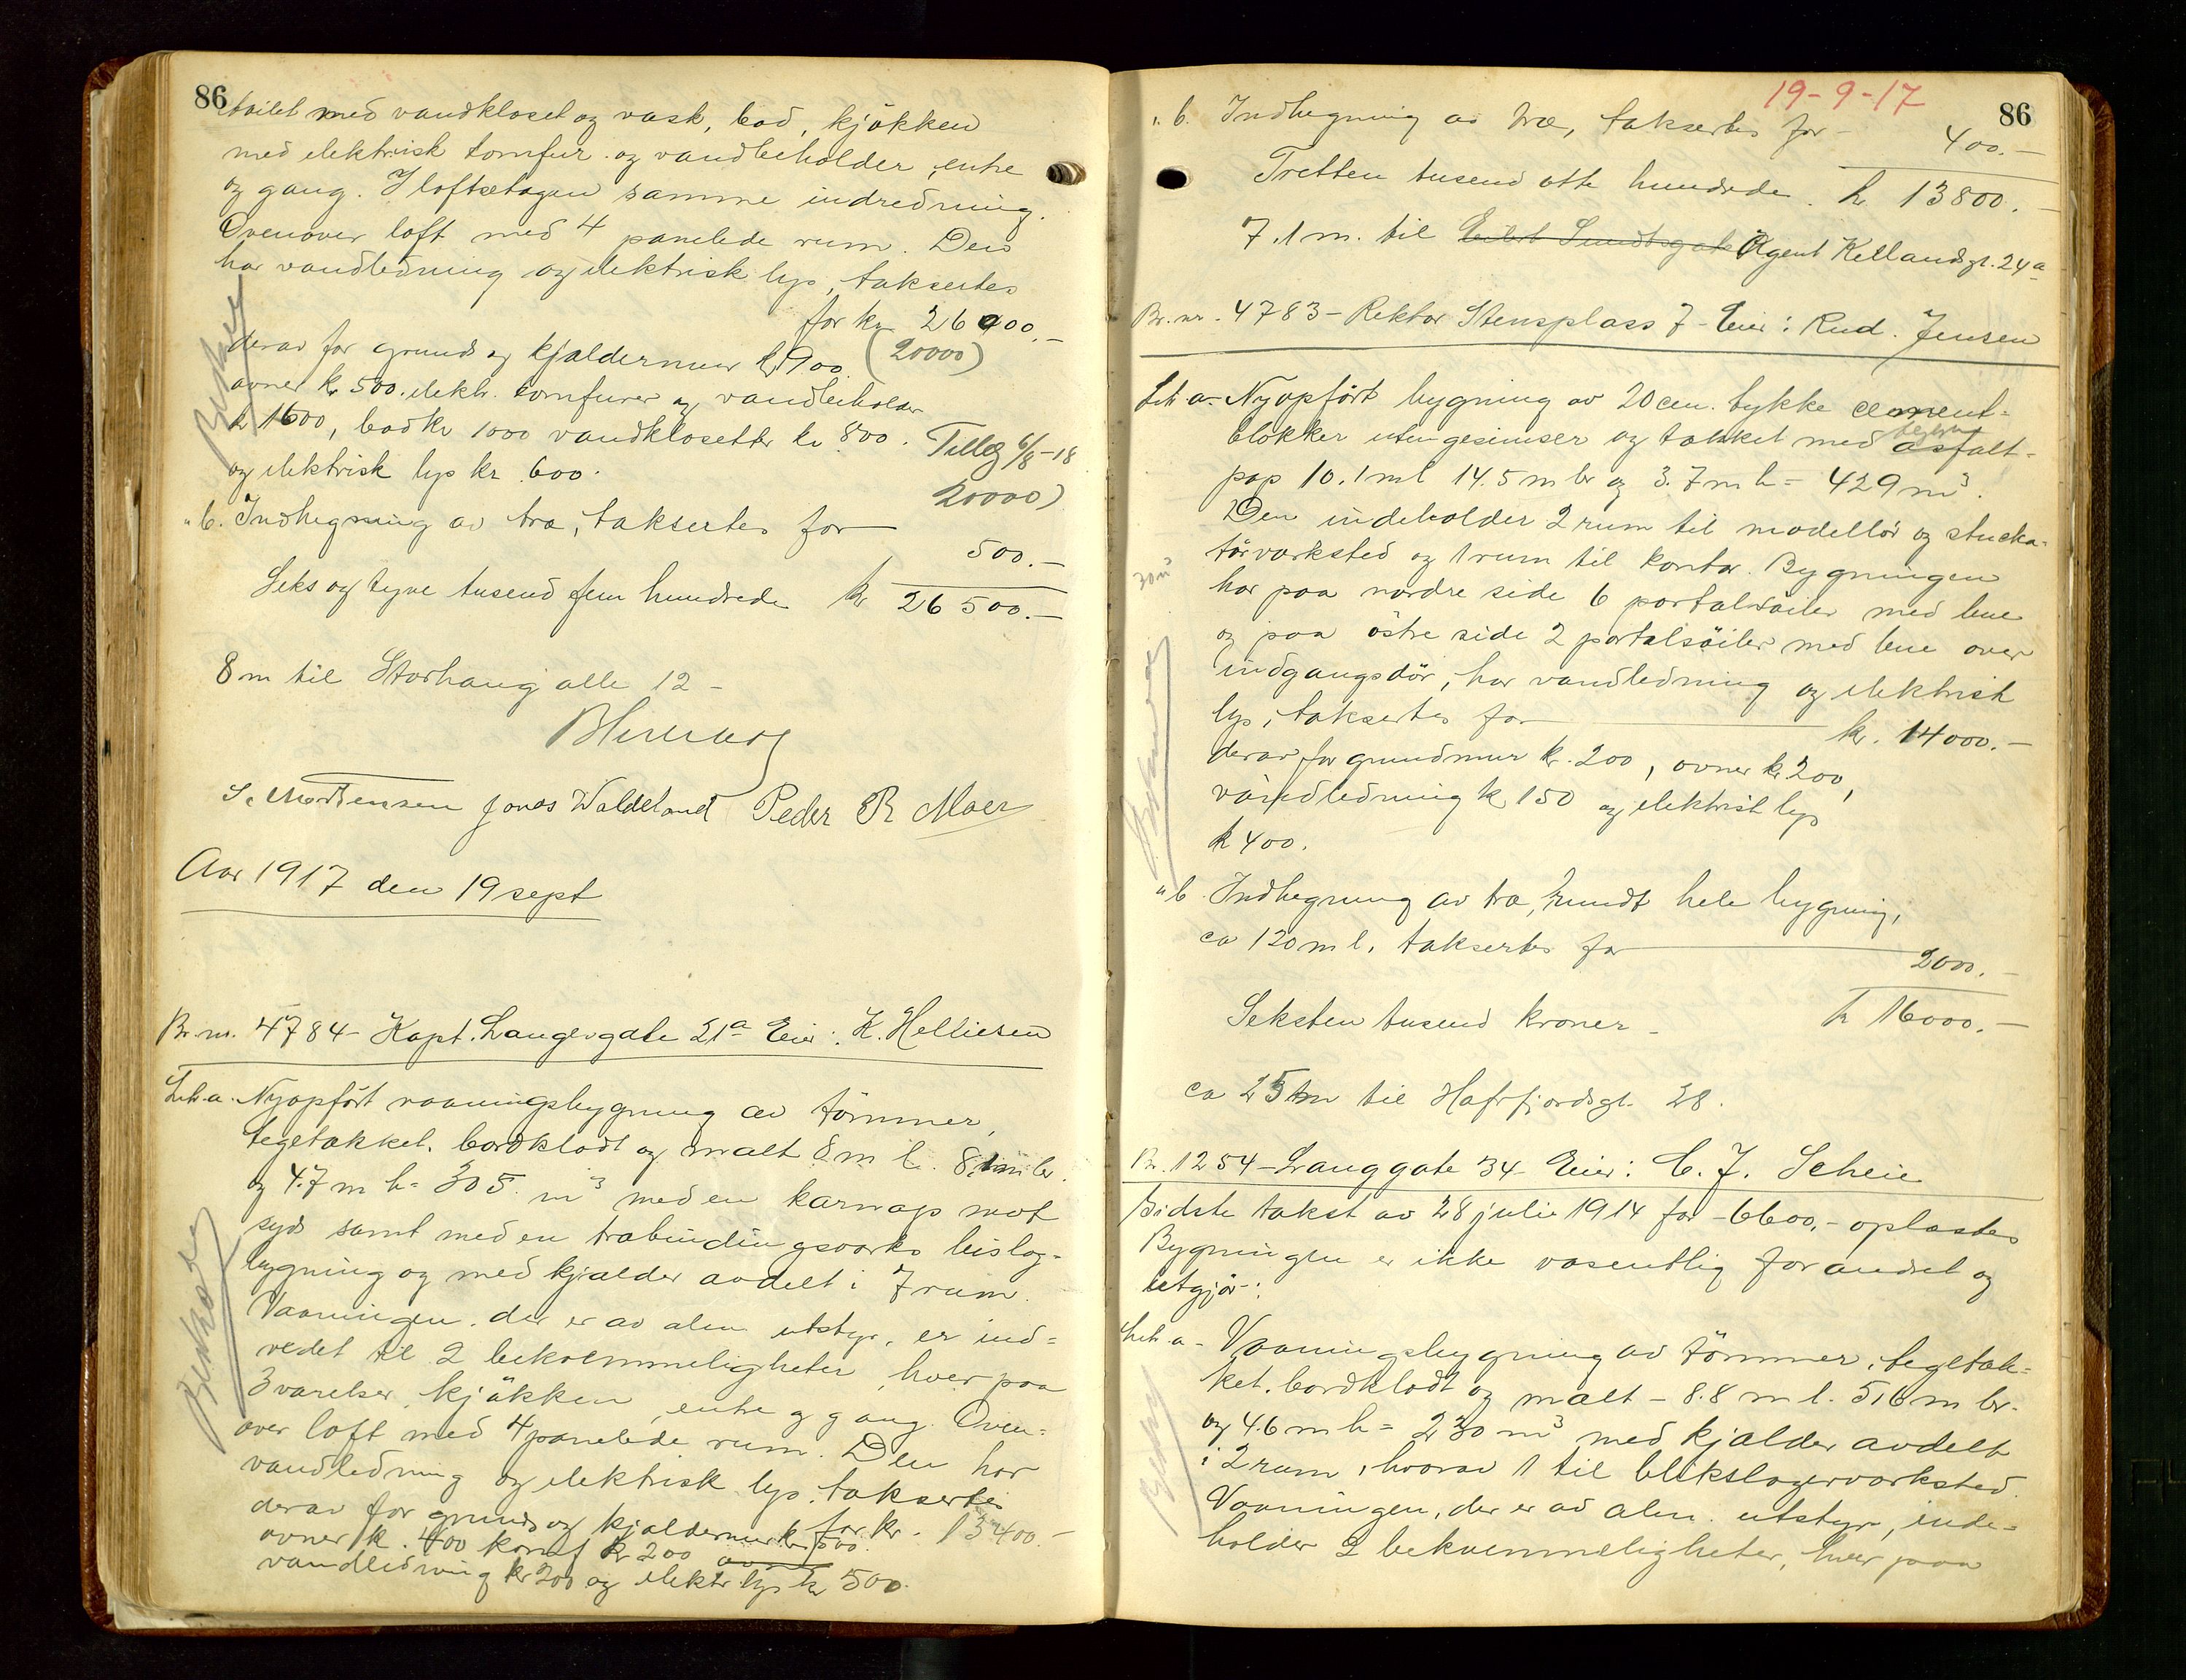 86
toilet med vandkloset og vask, bad, kjökken
med elektrisk komfur og vandbeholder, entre
og gang. I loftsetagen samme indredning.
Ovenover loft med 4 panelede rum. Den
har vandledning og elektrisk lys, taksertes
for kr 26000.-
derav for grund og kjeldermur kr 900 (20000)
ovner kr 500. elektr. komfurer og vandbeholder
kr 1600, bad kr 1000 vandklosetter kr 800.
og elektrisk lys kr. 600.
Tillæg 6/8-18
20000)
" b. Indhegning av træ, taksertes for 500.-
Seks og tyve tusend fem hundrede kr 26500.-
8 m til Storhaug alle 12 -
S. Mortensen Jonas Waldeland Peder R Moer
Aar 1917 den 19 sept
Br. nr. 4784 - Kapt. Langesgate 21a Eier: K. Helliesen
Lit. a. Nyopfört vaaningsbygning av tömmer,
teglttækket, bordklædt og malt 8 m l. 8.1 m br.
og 4.7 m h = 305 m³ med en karnap mot
syd samt med en træbindingsværks bislag-
bygning og med kjælder avdelt i 7 rum.
Vaaningen, der er av alm utstyr, er ind-
redet til 2 bekvemmeligheter, hver paa
3 værelser, kjökken, entre og gang. Oven-
over loft med 4 panelede rum. Den har
vandledning og elektrisk lys, taksertes
for kr. 13400-
derav for grund og kjældermur kr 500.
ovner kr. 400 komf kr 200
vandledning kr 200 og elektr lys kr 500.
19-9-17
86
" b. Indhegning av træ, taksertes for - 400.-
Tretten tusend otte hundrede. kr 13800.-
7.1 m. til Eilert Sundtsgate Agent Kellandsgt. 24a
Br. nr. 4783 - Rektor Stensplass 7 - Eier: Rud. Jensen
Lit. a - Nyopfört bygning av 20 cm. tykke cement-
blokker uten gesimser og tækket med asfalt-
pap 10.1 m l 14.5 m br og 3.7 m h = 429 m³.
Den indeholder 2 rum til modellör og stucka-
törværksted og 1 rum til kontor. Bygningen
30 m
har paa nordre side 6 portalsöiler med bue
og paa östre side 2 portalsöiler med bue over
indgangsdör, har vandledning og elektrisk
lys, taksertes for kr. 14000.-
derav for grundmur kr. 200, ovner kr 200,
vandledning kr 150 og elektrisk lys
kr 400.
" b. Indhegning av træ, rundt hele bygning,
ca 120 m l. taksertes for 2000.-
Seksten tusend kroner - kr 16000.-
ca 25 m til Hafrsfjordsgt. 28.
Br. 1254 - Langgate 34 - Eier: C. J. Scheie
Sidste takst av 28 juli 1914 for - 6600.- oplæstes
Bygningen er ikke væsentlig forandret og
utgjör:
Lit. a - Vaaningsbygning av tömmer, tegltæk-
ket, bordklædt og malt - 8.8 m l. 5.6 m br.
og 4.6 m h = 230 m³ med kjælder avdelt
i 2 rum, hvorav 1 til blikslagerværksted.
Vaaningen, der er av alm. utstyr, inde-
holder 2 bekvemmeligheter, hver paa